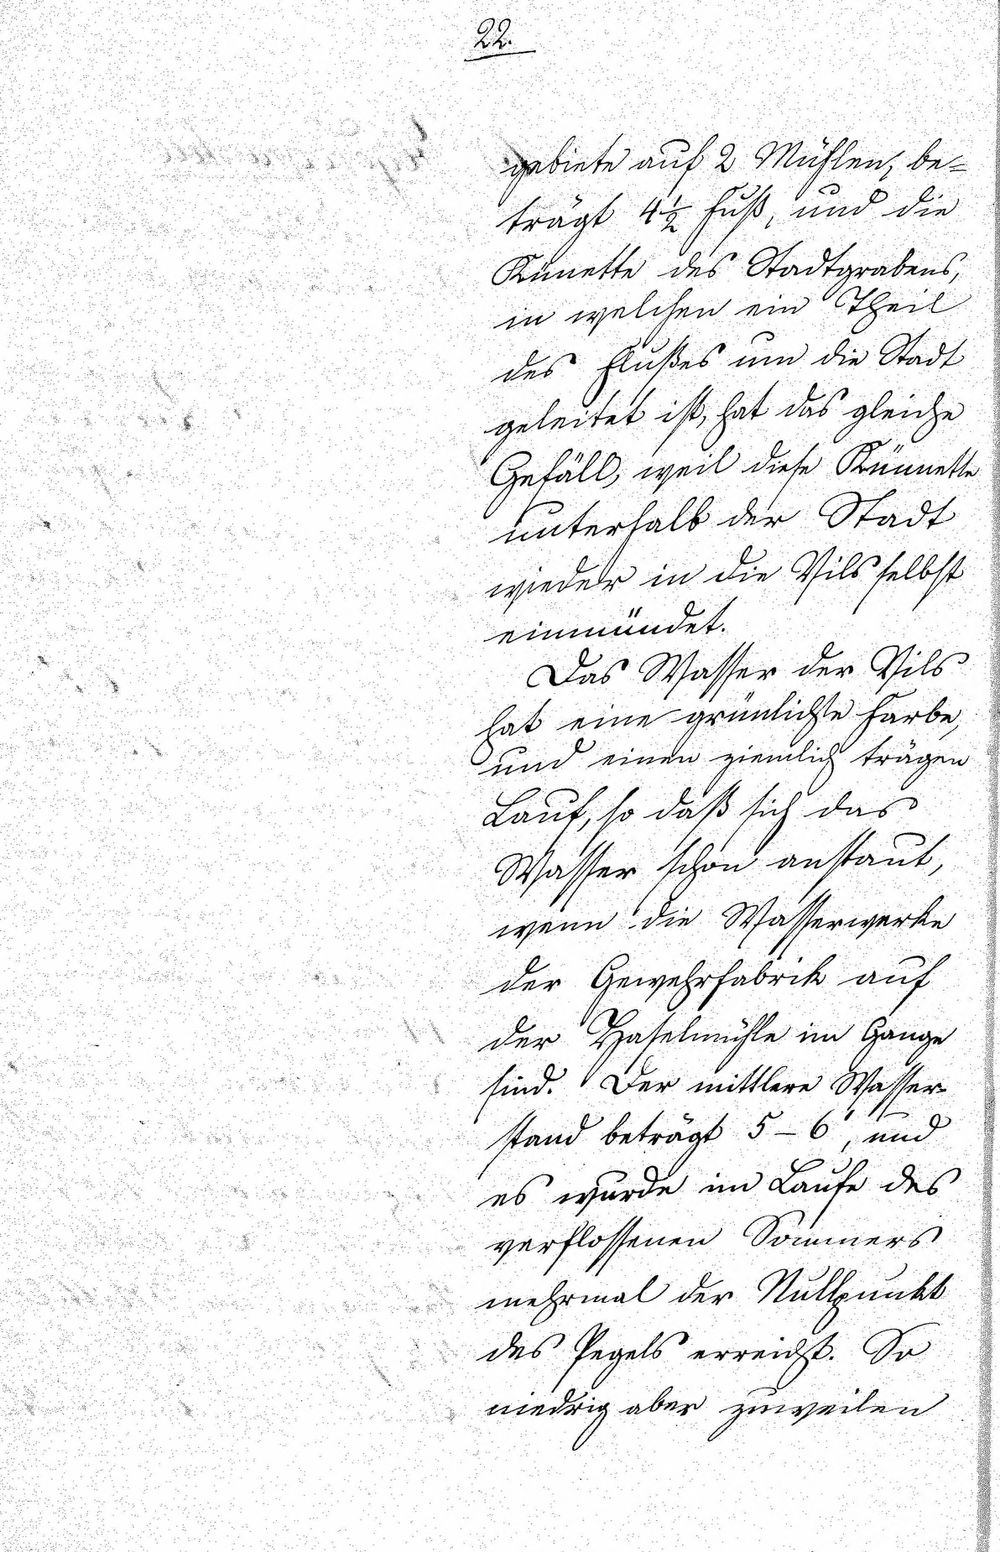 22.
gebiete auf 2 Mühlen, be=
trägt 4½ Fuß, und die
Künette des Stadtgrabens,
in welchen ein Theil
des Flußes um die Stadt
geleitet ist, hat das gleiche
Gefäll, weil diese Künnette
unterhalb der Stadt
wieder in die Vils selbst
einmündet.
Das Wasser der Vils
hat eine grünlichte Farbe,
und einen ziemlich trägen
Lauf, so daß sich das
Wasser schon anstaut,
wenn die Wasserwerke
der Gewehrfabrik auf
der Haselmühle im Gange
sind. Der mittlere Wasser-
stand beträgt 5–6', und
es wurde im Laufe des
verflossenen Sommers
mehrmal der Nullpunkt
des Pegels erreicht. So
niedrig aber zuweilen